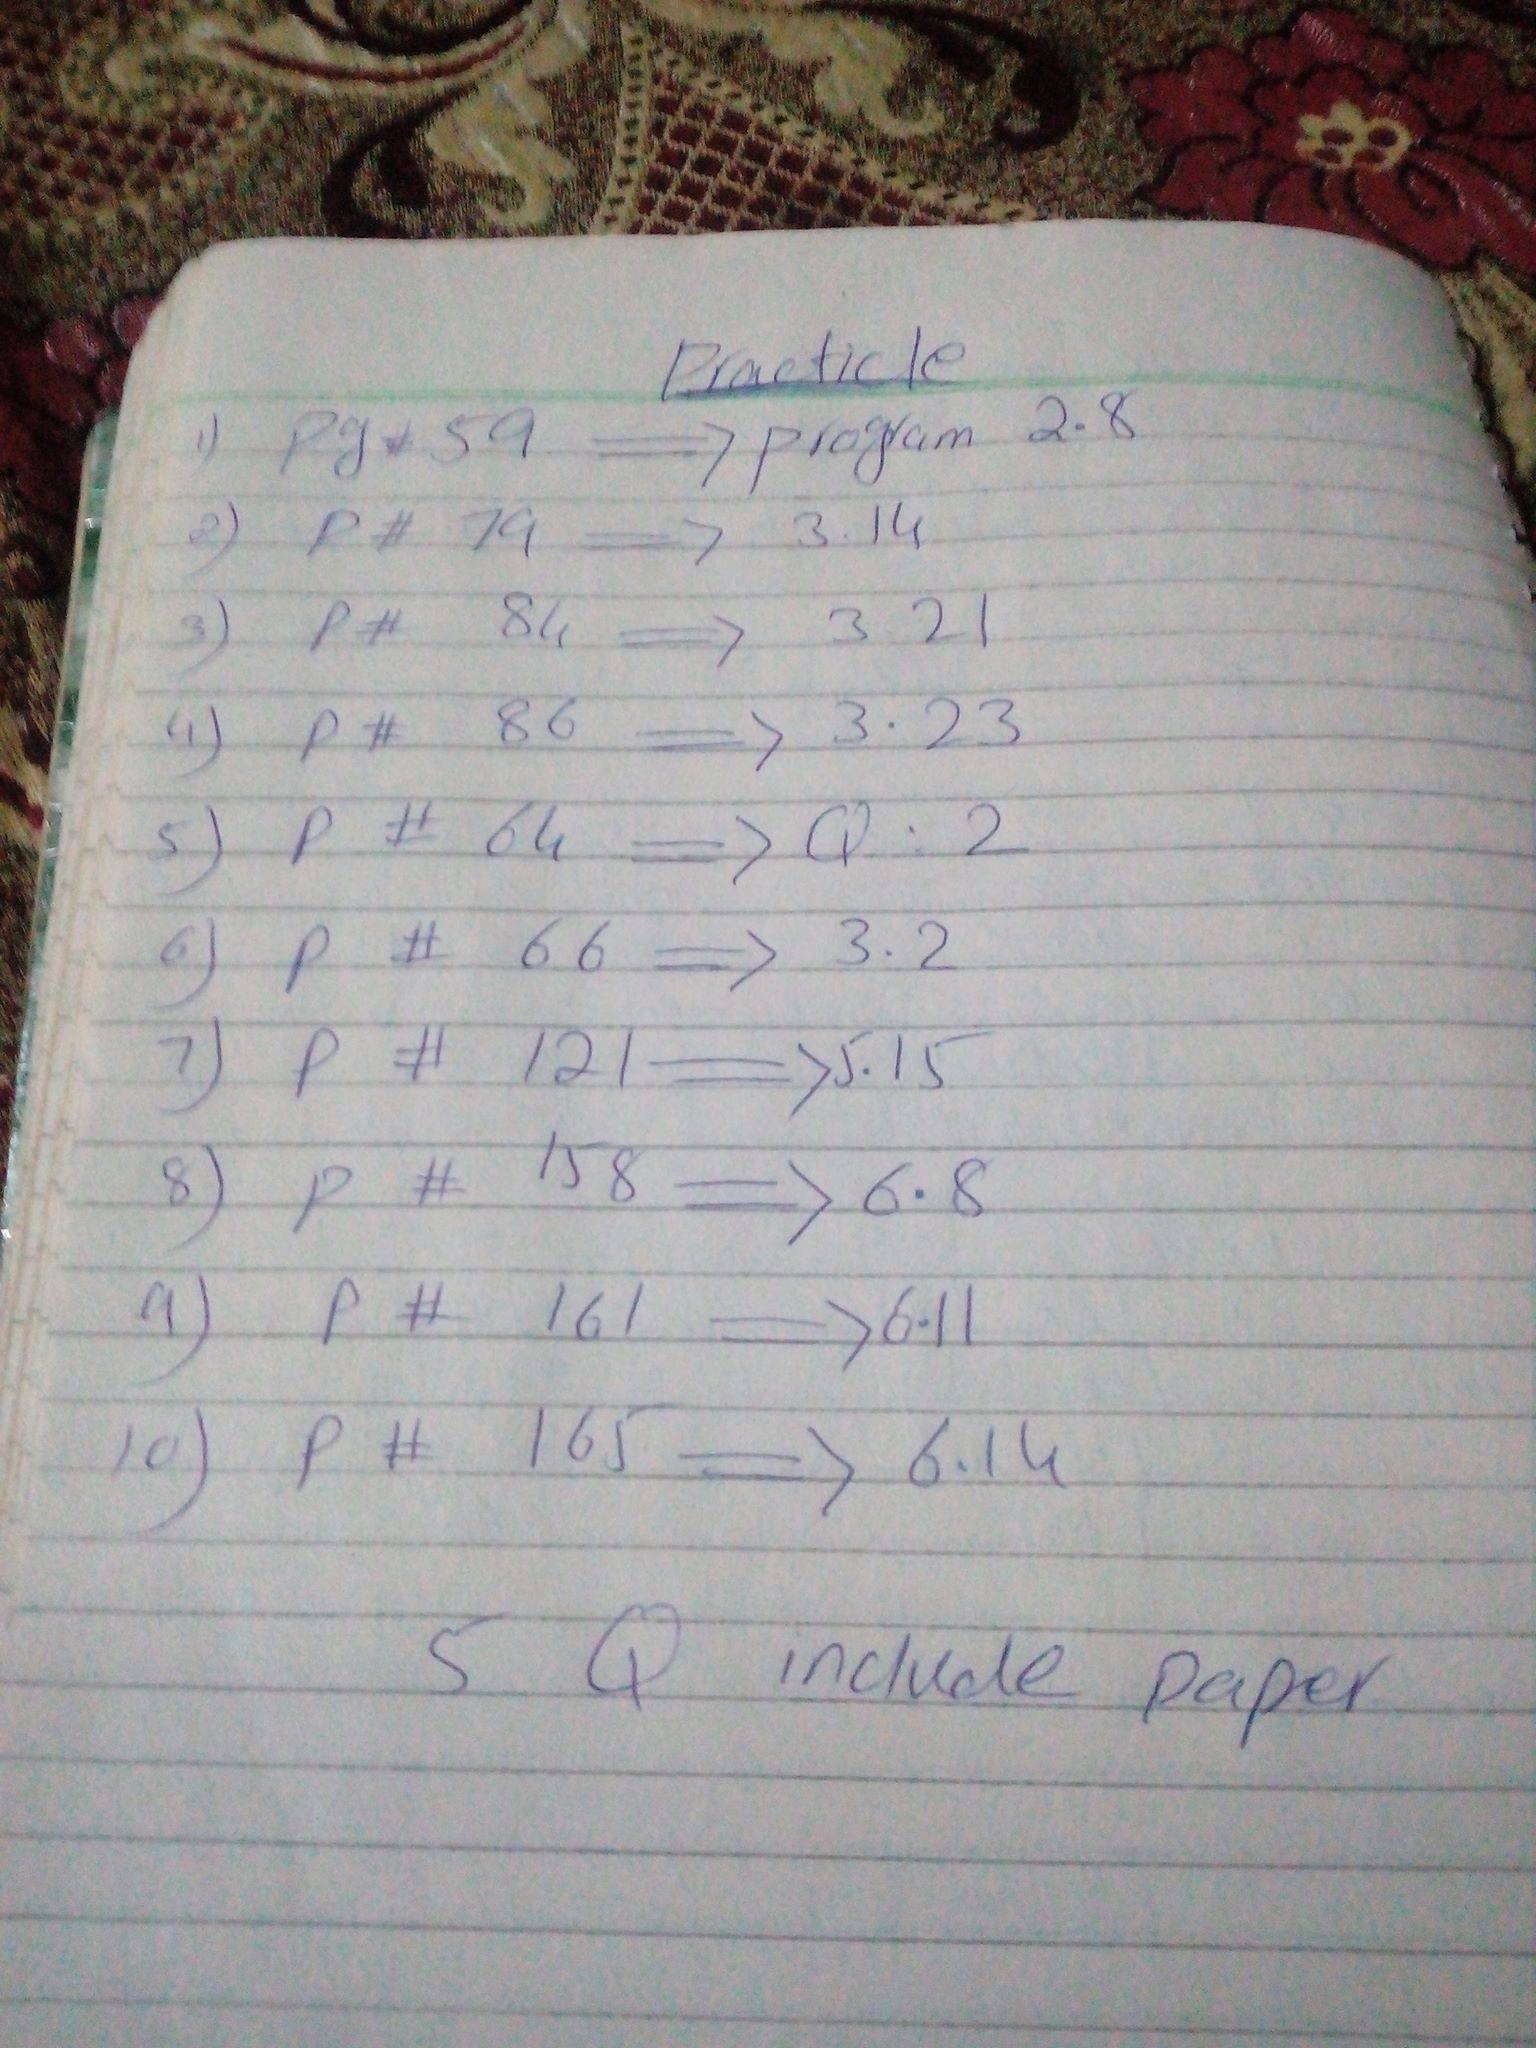 Practicle
1) Pg # 59 => program 2.8
2) P # 79 => 3.14
3) P # 84 => 3 21
4) P # 86 => 3.23
5) P # 64 => Q : 2
6) P # 66 => 3.2
7) P # 121 => 5.15
8) P # 158 => 6.8
9) P # 161 => 6.11
10) P # 165 => 6.14
5 Q include paper